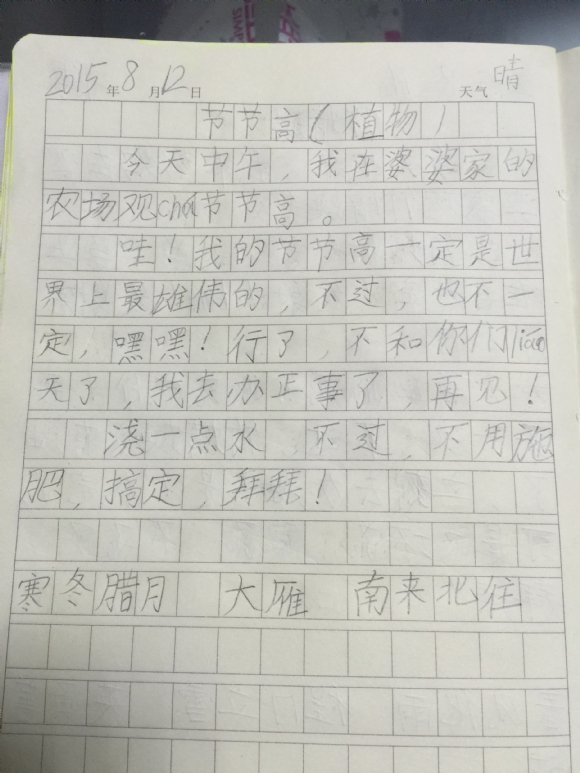 2015年8月12日 天气 晴
节节高(植物)
今天中午，我在婆婆家的
农场观chá节节高。
哇！我的节节高一定是世
界上最雄伟的，不过，也不一
定，嘿嘿！行了，不和你们liáo
天了，我去办正事了，再见！
浇一点水，不过，不用施
肥，搞定，拜拜！
寒冬腊月 大雁 南来北往